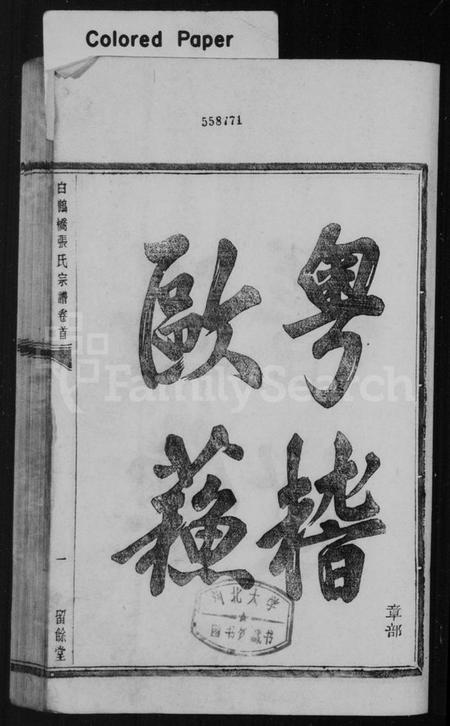 Colored Paper
558771
粵稽
歐蘓
章部
白鶴橋張氏宗譜卷首
一
留餘堂
河北大学
图书馆藏书
FamilySearch